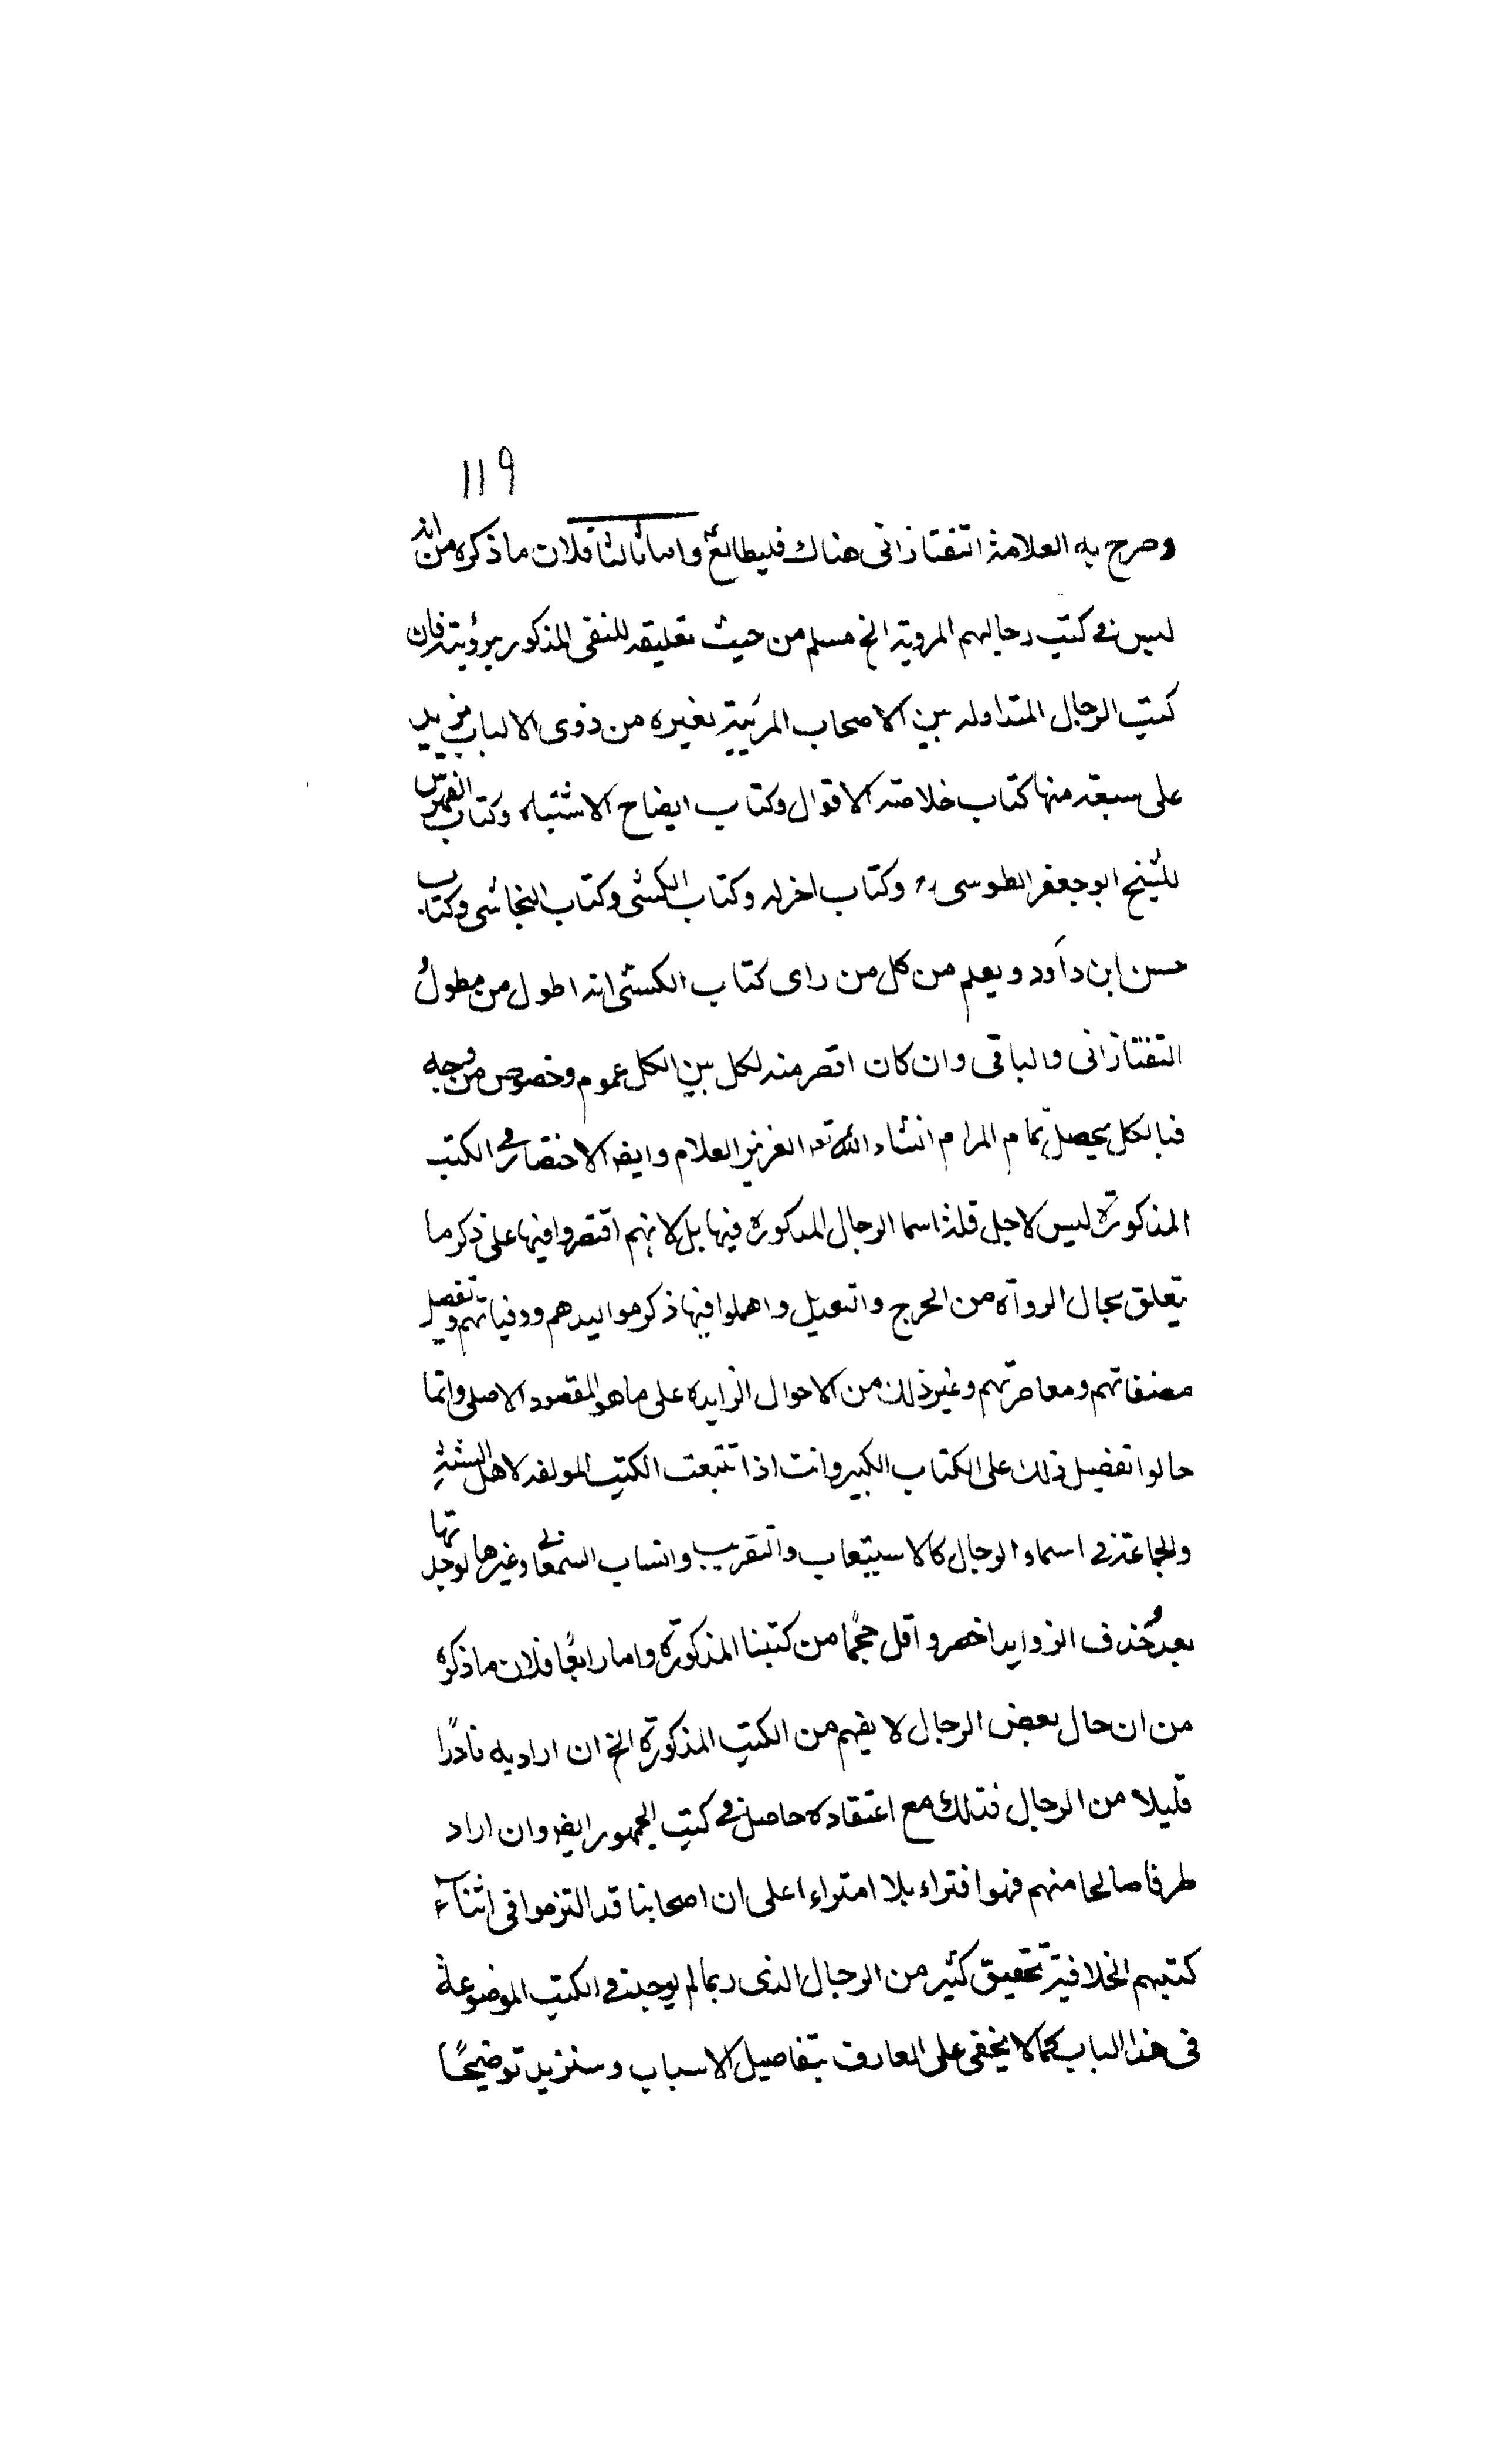 ١١٩
وصرح به العلامة التفتازانى هناك فليطالع واما ثالثا فلان ما ذكره من انه
ليس فى كتب رجالهم المروية الخ مسلم من حيث تعليقه للنفى المذكور برؤيته فان
كتب الرجال المتداوله بين الاصحاب المرئية لغيره من ذوى الالباب يزيد
على سبعة منها كتاب خلاصة الاقوال وكتاب ايضاح الاشتباه وكتاب الفهرس
للشيخ ابو جعفر الطوسى ره وكتاب اخر له وكتاب الكشى وكتاب النجاشى وكتاب
حسن ابن داود ويعلم من كل من راى كتاب الكشى انه اطول من مطول
التفتازانى والباقى وان كان اقصر منه لكل بين الكل عموم وخصوص من وجه
فبالكل يحصل تمام المرام انشاء الله تعه العزيز العلام وايضه الاختصار فى الكتب
المذكورة ليس لاجل قلة اسما الرجال المذكورة فيها بل لانهم اقتصروا فيها على ذكر ما
يتعلق بحال الرواة من الجرح والتعديل واهملوا فيها ذكر مواليدهم ووفياتهم وتفصيل
مصنفاتهم ومعاصرتهم وغير ذلك من الاحوال الزايدة على ما هو المقصود الاصلى وانما
حالوا تفصيل ذلك على الكتاب الكبير وانت اذا تتبعت الكتب المولفه لاهل السنة
والجماعة فى اسماء الرجال كالاستيعاب والتقريب وانساب السمعانى وغيرها لوجدتها
بعد حذف الزوايد اخصر واقل حجمًا من كتبنا المذكورة واما رابعًا فلان ما ذكره
من ان حال بعض الرجال لا يفهم من الكتب المذكورة الخ ان اراد به نادرًا
قليلا من الرجال فذلك مع اعتقاده حاصل فى كتب الجمهور ايضه وان اراد
طرفا صالحا منهم فهو افتراء بلا امتراء اعلى ان اصحابنا قد التزموا فى اثناء
كتبهم الخلافية تحقيق كثير من الرجال الذى ربما لم يوجد فى الكتب الموضوعة
فى هذا الباب كما لا يخفى على العارف بتفاصيل الاسباب وسنزيد توضيحًا